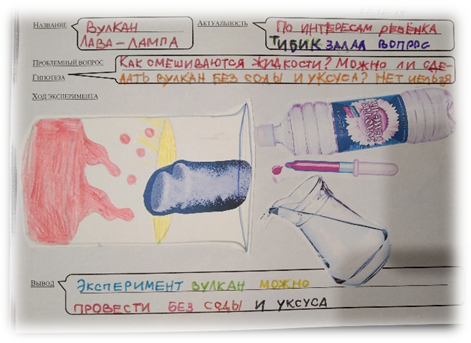 НАЗВАНИЕ ВУЛКАН ЛАВА-ЛАМПА
АКТУАЛЬНОСТЬ ПО ИНТЕРЕСАМ РЕБЁНКА
ТИБИК ЗАДАЛ ВОПРОС
ПРОБЛЕМНЫЙ ВОПРОС КАК СМЕШИВАЮТСЯ ЖИДКОСТИ? МОЖНО ЛИ СДЕ-
ГИПОТЕЗА ЛАТЬ ВУЛКАН БЕЗ СОДЫ И УКСУСА? НЕТ НЕЛЬЗЯ
ХОД ЭКСПЕРИМЕНТА
ВЫВОД ЭКСПЕРИМЕНТ ВУЛКАН МОЖНО
ПРОВЕСТИ БЕЗ СОДЫ И УКСУСА